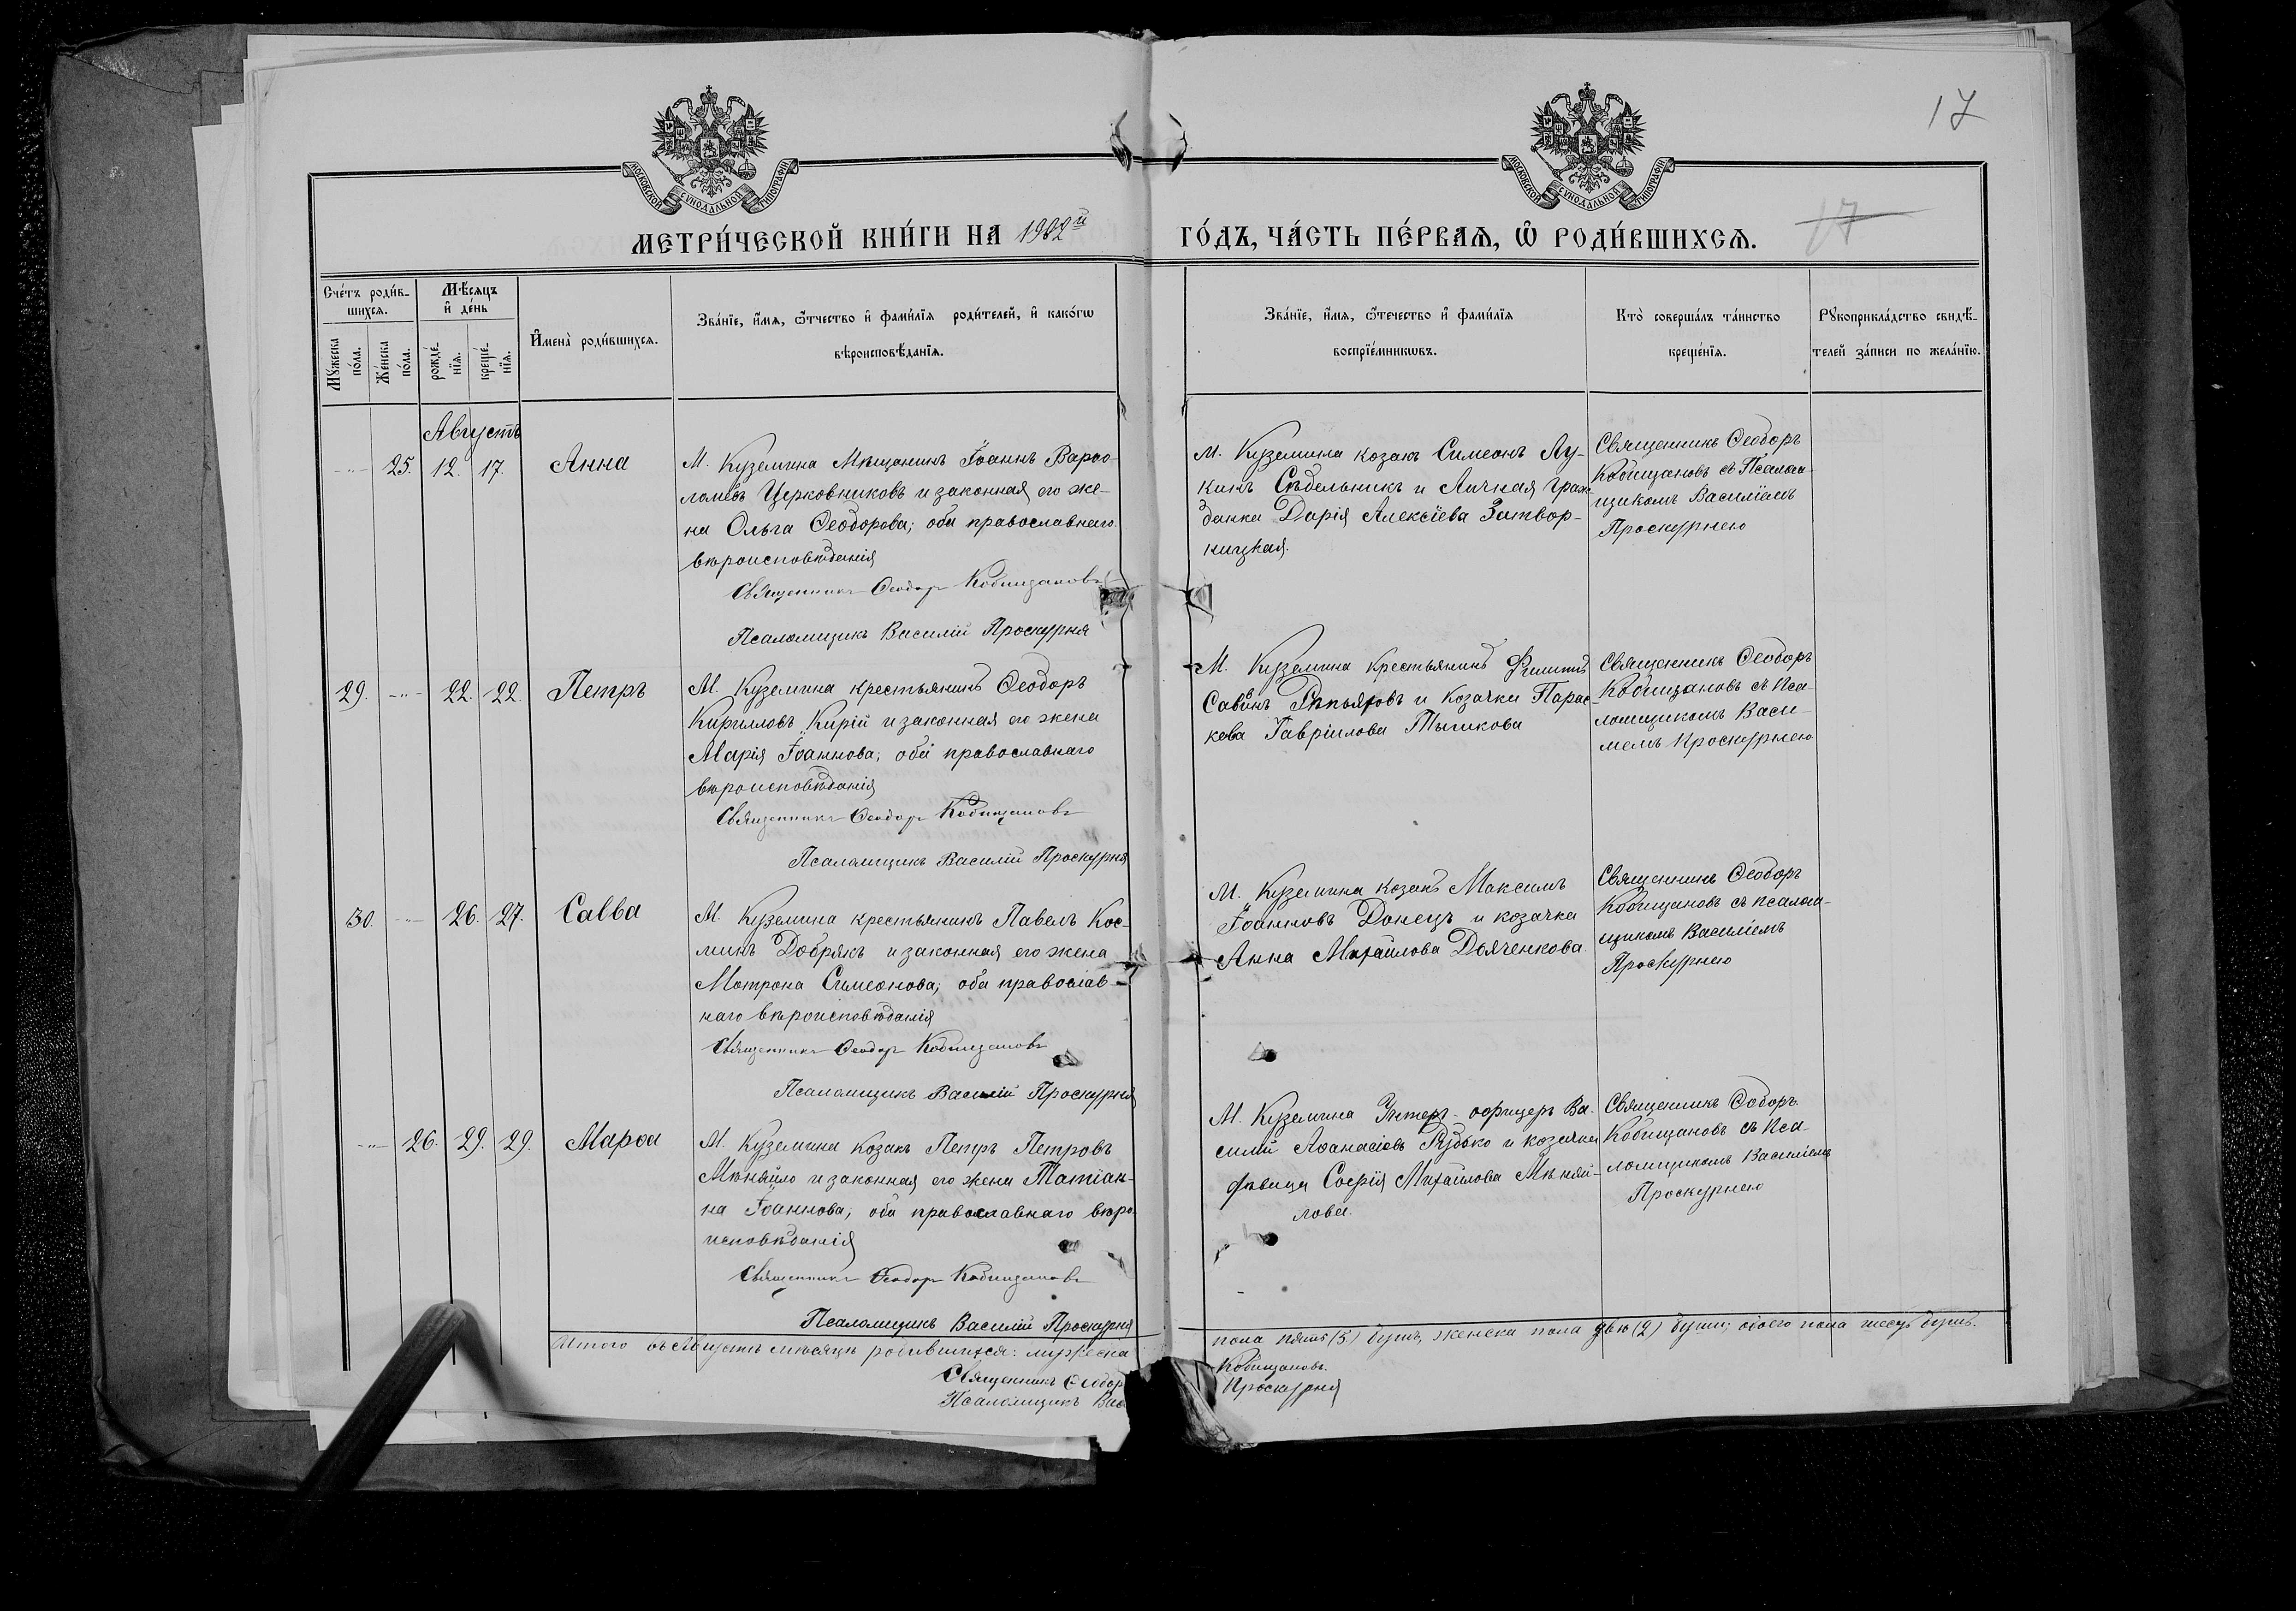 17
МОСКОВСКОЙ СѴНОДАЛЬНОЙ ТИПОГРАФІИ
МОСКОВСКОЙ СѴНОДАЛЬНОЙ ТИПОГРАФІИ
МЕТРИ́ЧЕСКОЙ КНИ́ГИ НА 1902й
ГО́ДЪ, ЧА́СТЬ ПЕ́РВАѦ, Ѡ РОДИ́ВШИХСѦ.
17
Сче́тъ роди́в-
шихсѧ.
Мѣсѧцъ
и҆ де́нь
Мꙋ́жеска
по́ла.
Же́нска
по́ла.
рожде́-
нїѧ.
креще́-
нїѧ.
И҆мена̀ роди́вшихсѧ.
Зва́нїе, и҆́мѧ, ѻ҆́тчество и҆ фами́лїѧ роди́телей, и҆ како́гѡ
вѣроисповѣ́данїѧ.
Зва́нїе, и҆́мѧ, ѻ҆́течество и҆ фами́лїѧ
воспрїе́мникѡвъ.
Кто̀ соверша́лъ та́инство
креще́нїѧ.
Рꙋкоприкла́дство свидѣ́-
телей за́писи по жела́нїю.
Августъ
-"- 25. 12. 17. Анна
М. Куземина Мѣщанинъ Іоаннъ Варѳо-
ломѣевъ Церковниковъ и законная его же-
на Ольга Ѳеодорова; оба православнаго
вѣроисповѣданія
Священникъ Ѳеодоръ Кобищановъ
Псаломщикъ Василій Проскурня
М. Куземина козакъ Симеонъ Лу-
кинъ Сѣдельникъ и Личная граж-
данка Дарія Алексіева Затвор-
ницкая.
Священникъ Ѳеодоръ
Кобищановъ съ Псалом-
щикомъ Василіемъ
Проскурнею
29. -"- 22. 22. Петръ
М. Куземина крестьянинъ Ѳеодоръ
Кирилловъ Кирій и законная его жена
Марія Іоаннова; оба православнаго
вѣроисповѣданія
Священникъ Ѳеодоръ Кобищановъ
Псаломщикъ Василій Проскурня
М. Куземина крестьянинъ Филиппъ
Саввинъ и козачка Парас-
кева Гавріилова
Священникъ Ѳеодоръ
Кобищановъ съ Пса-
ломщикомъ Васи-
ліемъ Проскурнею
30. -"- 26. 27. Савва
М. Куземина крестьянинъ Павелъ Кос-
минъ Добрякъ и законная его жена
Мотрона Симеонова; оба православ-
наго вѣроисповѣданія
Священникъ Ѳеодоръ Кобищановъ
Псаломщикъ Василій Проскурня
М. Куземина козакъ Максимъ
Іоанновъ Донецъ и козачка
Анна Михаилова Дьяченкова
Священникъ Ѳеодоръ
Кобищановъ съ псалом-
щикомъ Василіемъ
Проскурнею
-"- 26. 29. 29. Марѳа
М. Куземина козакъ Петръ Петровъ
Мѣняйло и законная его жена Татіан-
на Іоаннова; оба православнаго вѣро-
исповѣданія
Священникъ Ѳеодоръ Кобищановъ
Псаломщикъ Василій Проскурня
М. Куземина Унтеръ-офицеръ Ва-
силій Аѳанасіевъ Рудько и козачка
дѣвица Софія Михаилова Мѣняй-
лова.
Священникъ Ѳеодоръ
Кобищановъ съ Пса-
ломщикомъ Василіемъ
Проскурнею
Итого въ Августѣ мѣсяцѣ родившихся: мужеска
пола пять (5) душъ, женска пола двѣ (2) души; обоего пола душъ.
Священникъ Ѳеодоръ Кобищановъ.
Псаломщикъ Вас Проскурня